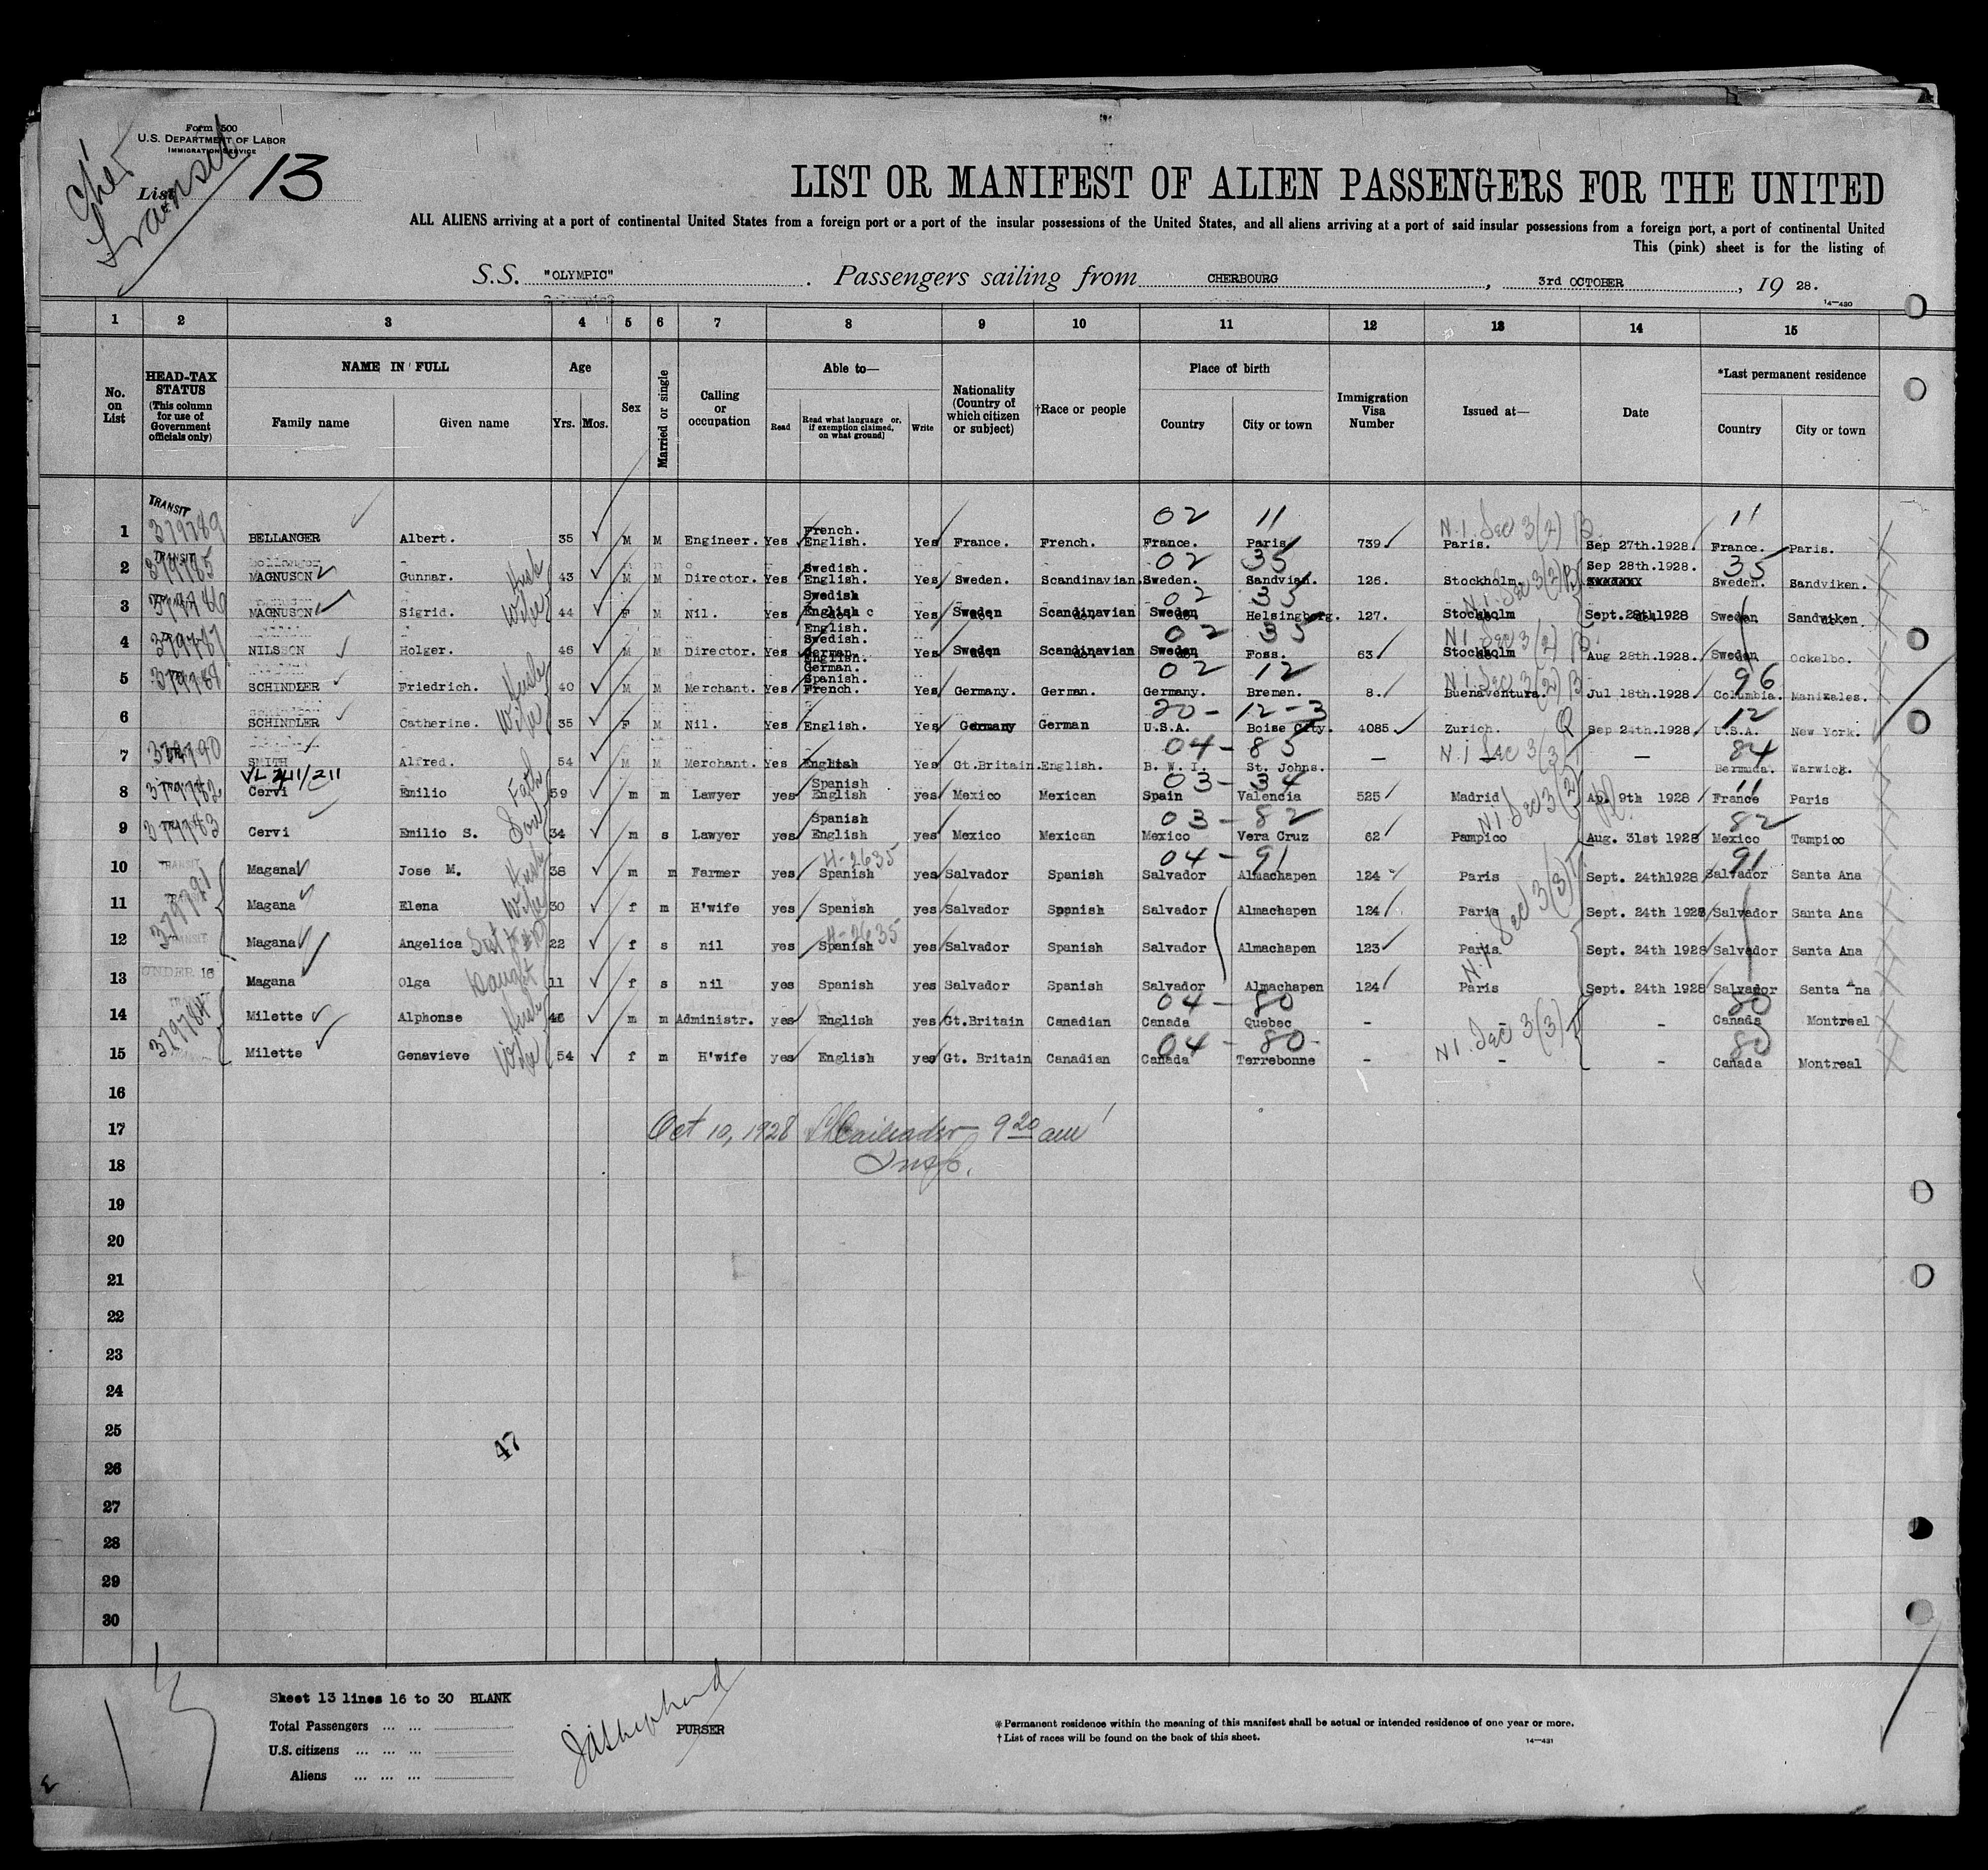 Form 500
U.S. DEPARTMENT OF LABOR
IMMIGRATION SERVICE
Cher
Transit
List 13
LIST OR MANIFEST OF ALIEN PASSENGERS FOR THE UNITED
ALL ALIENS arriving at a port of continental United States from a foreign port or a port of the insular possessions of the United States, and all aliens arriving at a port of said insular possessions from a foreign port, a port of continental United
This (pink) sheet is for the listing of
S.S. "OLYMPIC" Passengers sailing from CHERBOURG, 3rd OCTOBER, 19 28.
14—430
1 2 3 4 5 6 7 8 9 10 11 12 13 14 15
No. on List
HEAD-TAX STATUS (This column for use of Government officials only)
NAME IN FULL
Family name Given name
Age
Yrs. Mos.
Sex
Married or single
Calling or occupation
Able to—
Read Read what language or, if exemption claimed, on what ground] Write
Nationality (Country of which citizen or subject)
†Race or people
Place of birth
Country City or town
Immigration Visa Number
Issued at—
Date
*Last permanent residence
Country City or town
TRANSIT 02 11 N.I. Sec 3(2) B. 11
1 379789 BELLANGER Albert. 35 M M Engineer. Yes French. English. Yes France. French. France. Paris 739 Paris. Sep 27th.1928. France. Paris.
TRANSIT 02 35 35
2 379785 MAGNUSON Gunnar. Husb 43 M M Director. Yes Swedish. English. Yes Sweden. Scandinavian. Sweden. Sandvian. 126. Stockholm. Sep 28th.1928. Sweden. Sandviken.
02 35 N.I. Sec 3(2) B
3 379786 MAGNUSON Sigrid. Wife 44 F M Nil. Yes Swedish English Yes Sweden Scandinavian Sweden Helsingborg. 127. Stockholm Sept.28th1928 Sweden Sandviken
02 35 N.I. Sec 3(2) B.
4 379787 NILSSON Holger. 46 M M Director. Yes English. Swedish. German. Yes Sweden Scandinavian Sweden Foss. 63 Stockholm Aug 28th.1928. Sweden Ockelbo.
02 12 N.I. Sec 3(2) B 96
5 379788 SCHINDLER Friedrich. Husb 40 M M Merchant. Yes English. German. Spanish. French. Yes Germany. German. Germany. Bremen. 8. Buenaventura. Jul 18th.1928. Columbia. Manizales.
20 - 12 - 3 Q 12
6 SCHINDLER Catherine. Wife 35 F M Nil. Yes English. Yes Germany German U.S.A. Boise City. 4085 Zurich. Sep 24th.1928. U.S.A. New York.
04 - 85 N.I Sec 3(3) 84
7 379790 SMITH Alfred. 54 M M Merchant. Yes English Yes Gt.Britain. English. B. W. I. St. Johns. — — Bermuda. Warwick.
VL 211/211 03 - 34 11
8 379782 Cervi Emilio Fath 59 m m Lawyer yes Spanish English yes Mexico Mexican Spain Valencia 525 Madrid Ap. 9th 1928 France Paris
03 - 82 N.I. Sec 3(2) 82
9 379783 Cervi Emilio S. Son 34 m s Lawyer yes Spanish English yes Mexico Mexican Mexico Vera Cruz 62 Pampico Aug. 31st 1928 Mexico Tampico
TRANSIT H-2635 04 - 91 91
10 Magana Jose M. Husb 38 m m Farmer yes Spanish yes Salvador Spanish Salvador Almachapen 124 Paris Sept. 24th1928 Salvador Santa Ana
11 379791 Magana Elena Wife 30 f m H'wife yes Spanish yes Salvador Spanish Salvador Almachapen 124 Paris Sept. 24th 1928 Salvador Santa Ana
TRANSIT H-2635 N.I Sec 3(3)
12 Magana Angelica Sist to #10 22 f s nil yes Spanish yes Salvador Spanish Salvador Almachapen 123 Paris Sept. 24th 1928 Salvador Santa Ana
UNDER 16
13 Magana Olga Daught 11 f s nil yes Spanish yes Salvador Spanish Salvador Almachapen 124 Paris Sept. 24th 1928 Salvador Santa Ana
04 - 80 80
14 379784 Milette Alphonse Husb 46 m m Administr. yes English yes Gt.Britain Canadian Canada Quebec - - - Canada Montreal
04 - 80 N.I. Sec 3(3) 80
15 Milette Genavieve Wife 54 f m H'wife yes English yes Gt. Britain Canadian Canada Terrebonne - - - Canada Montreal
16
17 Oct 10, 1928 9 20 am
18 Insp.
19
20
21
22
23
24
25
47
26
27
28
29
30
13
Sheet 13 lines 16 to 30 BLANK
Total Passengers ... ...
U.S. citizens ... ... ...
Aliens ... ... ...
PURSER
*Permanent residence within the meaning of this manifest shall be actual or intended residence of one year or more.
†List of races will be found on the back of this sheet.
14—431